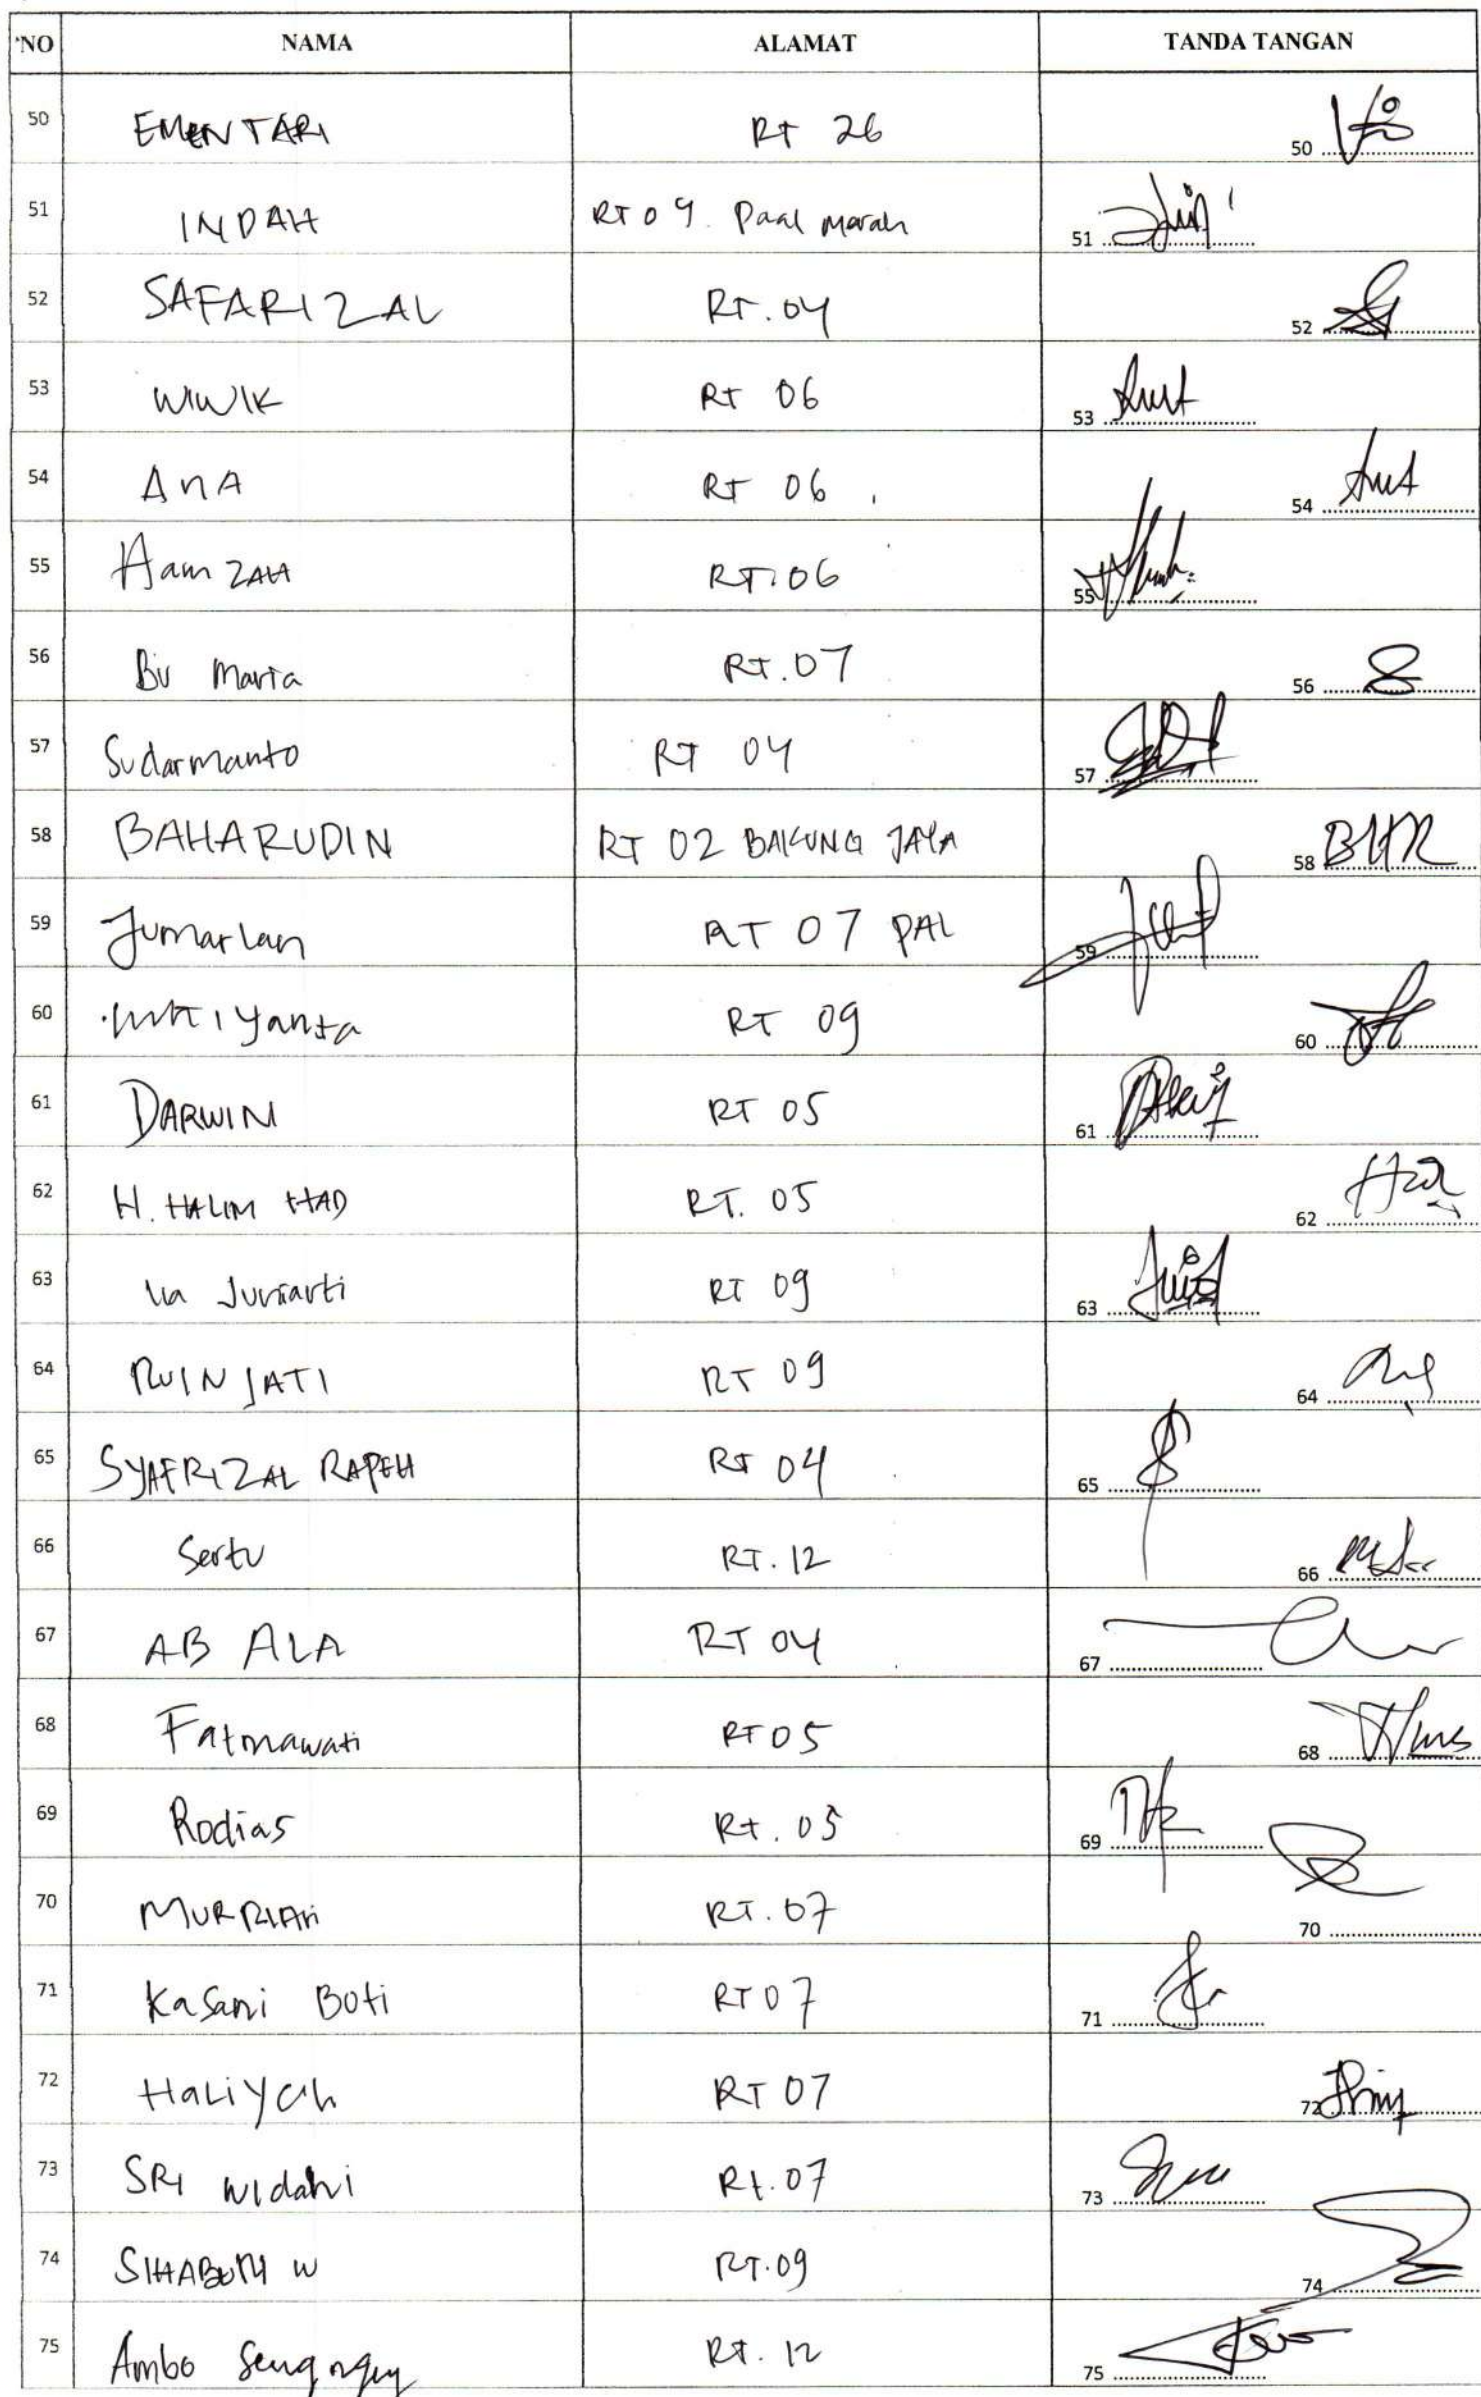 NO NAMA ALAMAT TANDA TANGAN
50 EMENTARI RT 26 50
51 INDAH RT 09 Paal Merah 51
52 SAFARIZAL RT.04 52
53 WIWIK RT 06 53
54 AnA RT 06 54
55 HamZAH RT.06 55
56 Bu Maria RT.07 56
57 Sudarmanto RT 04 57
58 BAHARUDIN RT 02 BAKUNG JAYA 58
59 Jumarlan RT 07 PAL 59
60 RT 09 60
61 DARWIN RT 05 61
62 H. HALIM HAD RT. 05 62
63 Juriarti RT 09 63
64 RUINJATI RT 09 64
65 SYAFRIZAL RAPEH RT 04 65
66 Sertu RT. 12 66
67 AB ALA RT 04 67
68 Fatmawati RT 05 68
69 Rodias Rt. 05 69
70 RT. 07 70
71 Kasani Boti RT 07 71
72 HaLiYah RT 07 72
73 SRI Rt. 07 73
74 W RT.09 74
75 Ambo Rt. 12 75